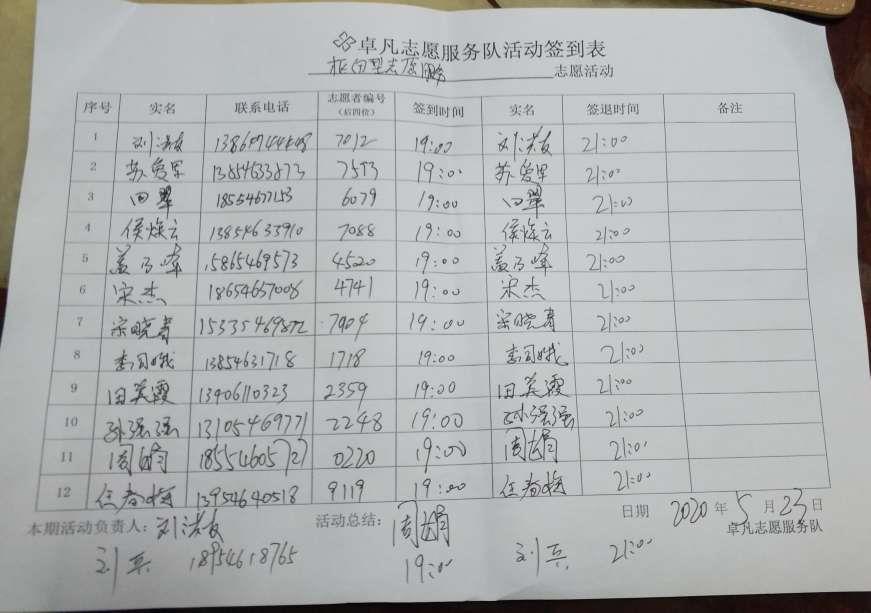 卓凡志愿服务队活动签到表
志愿服务 志愿活动
序号 实名 联系电话 志愿者编号（后四位） 签到时间 实名 签退时间 备注
1 刘洪友 7012 19:00 刘洪友 21:00
2 苏爱军 13854633873 7553 19:00 苏爱军 21:00
3 田翠 18554677153 6079 19:00 田翠 21:00
4 侯焕云 13854633910 7088 19:00 侯焕云 21:00
5 盖乃峰 15865469573 4520 19:00 盖乃峰 21:00
6 宋杰 18654657006 4741 19:00 宋杰 21:00
7 宗晓青 15335469872 7904 19:00 宗晓青 21:00
8 李同娥 13854631718 1718 19:00 李同娥 21:00
9 田英霞 13406110323 2359 19:00 田英霞 21:00
10 孙强强 13105469771 2248 19:00 孙强强 21:00
11 周娟 18554605727 0220 19:00 周娟 21:00
12 任春梅 13954640518 9119 19:00 任春梅 21:00
日期 2020 年 5 月 23 日
本期活动负责人：刘洪友 活动总结：周娟 卓凡志愿服务队
刘兵 18954618765 19:00 刘兵 21:00